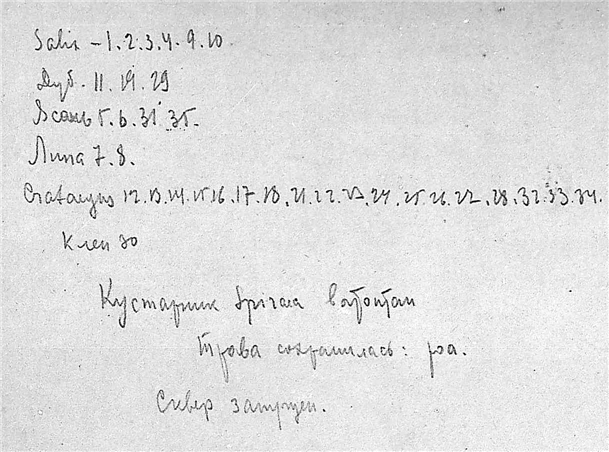 Salix – 1. 2. 3. 4. 9. 10.
Дуб. 11. 19. 29
Ясень 5. 6. 31. 35.
Липа 7. 8.
Crataegus 12. 13. 14. 15 16. 17. 18. 21. 22. 23. 24. 25. 26. 27. 28. 32. 33. 34.
Клен 30
Кустарник Spiraea вытоптан
Трава сохранилась: poa.
Сквер запущен.